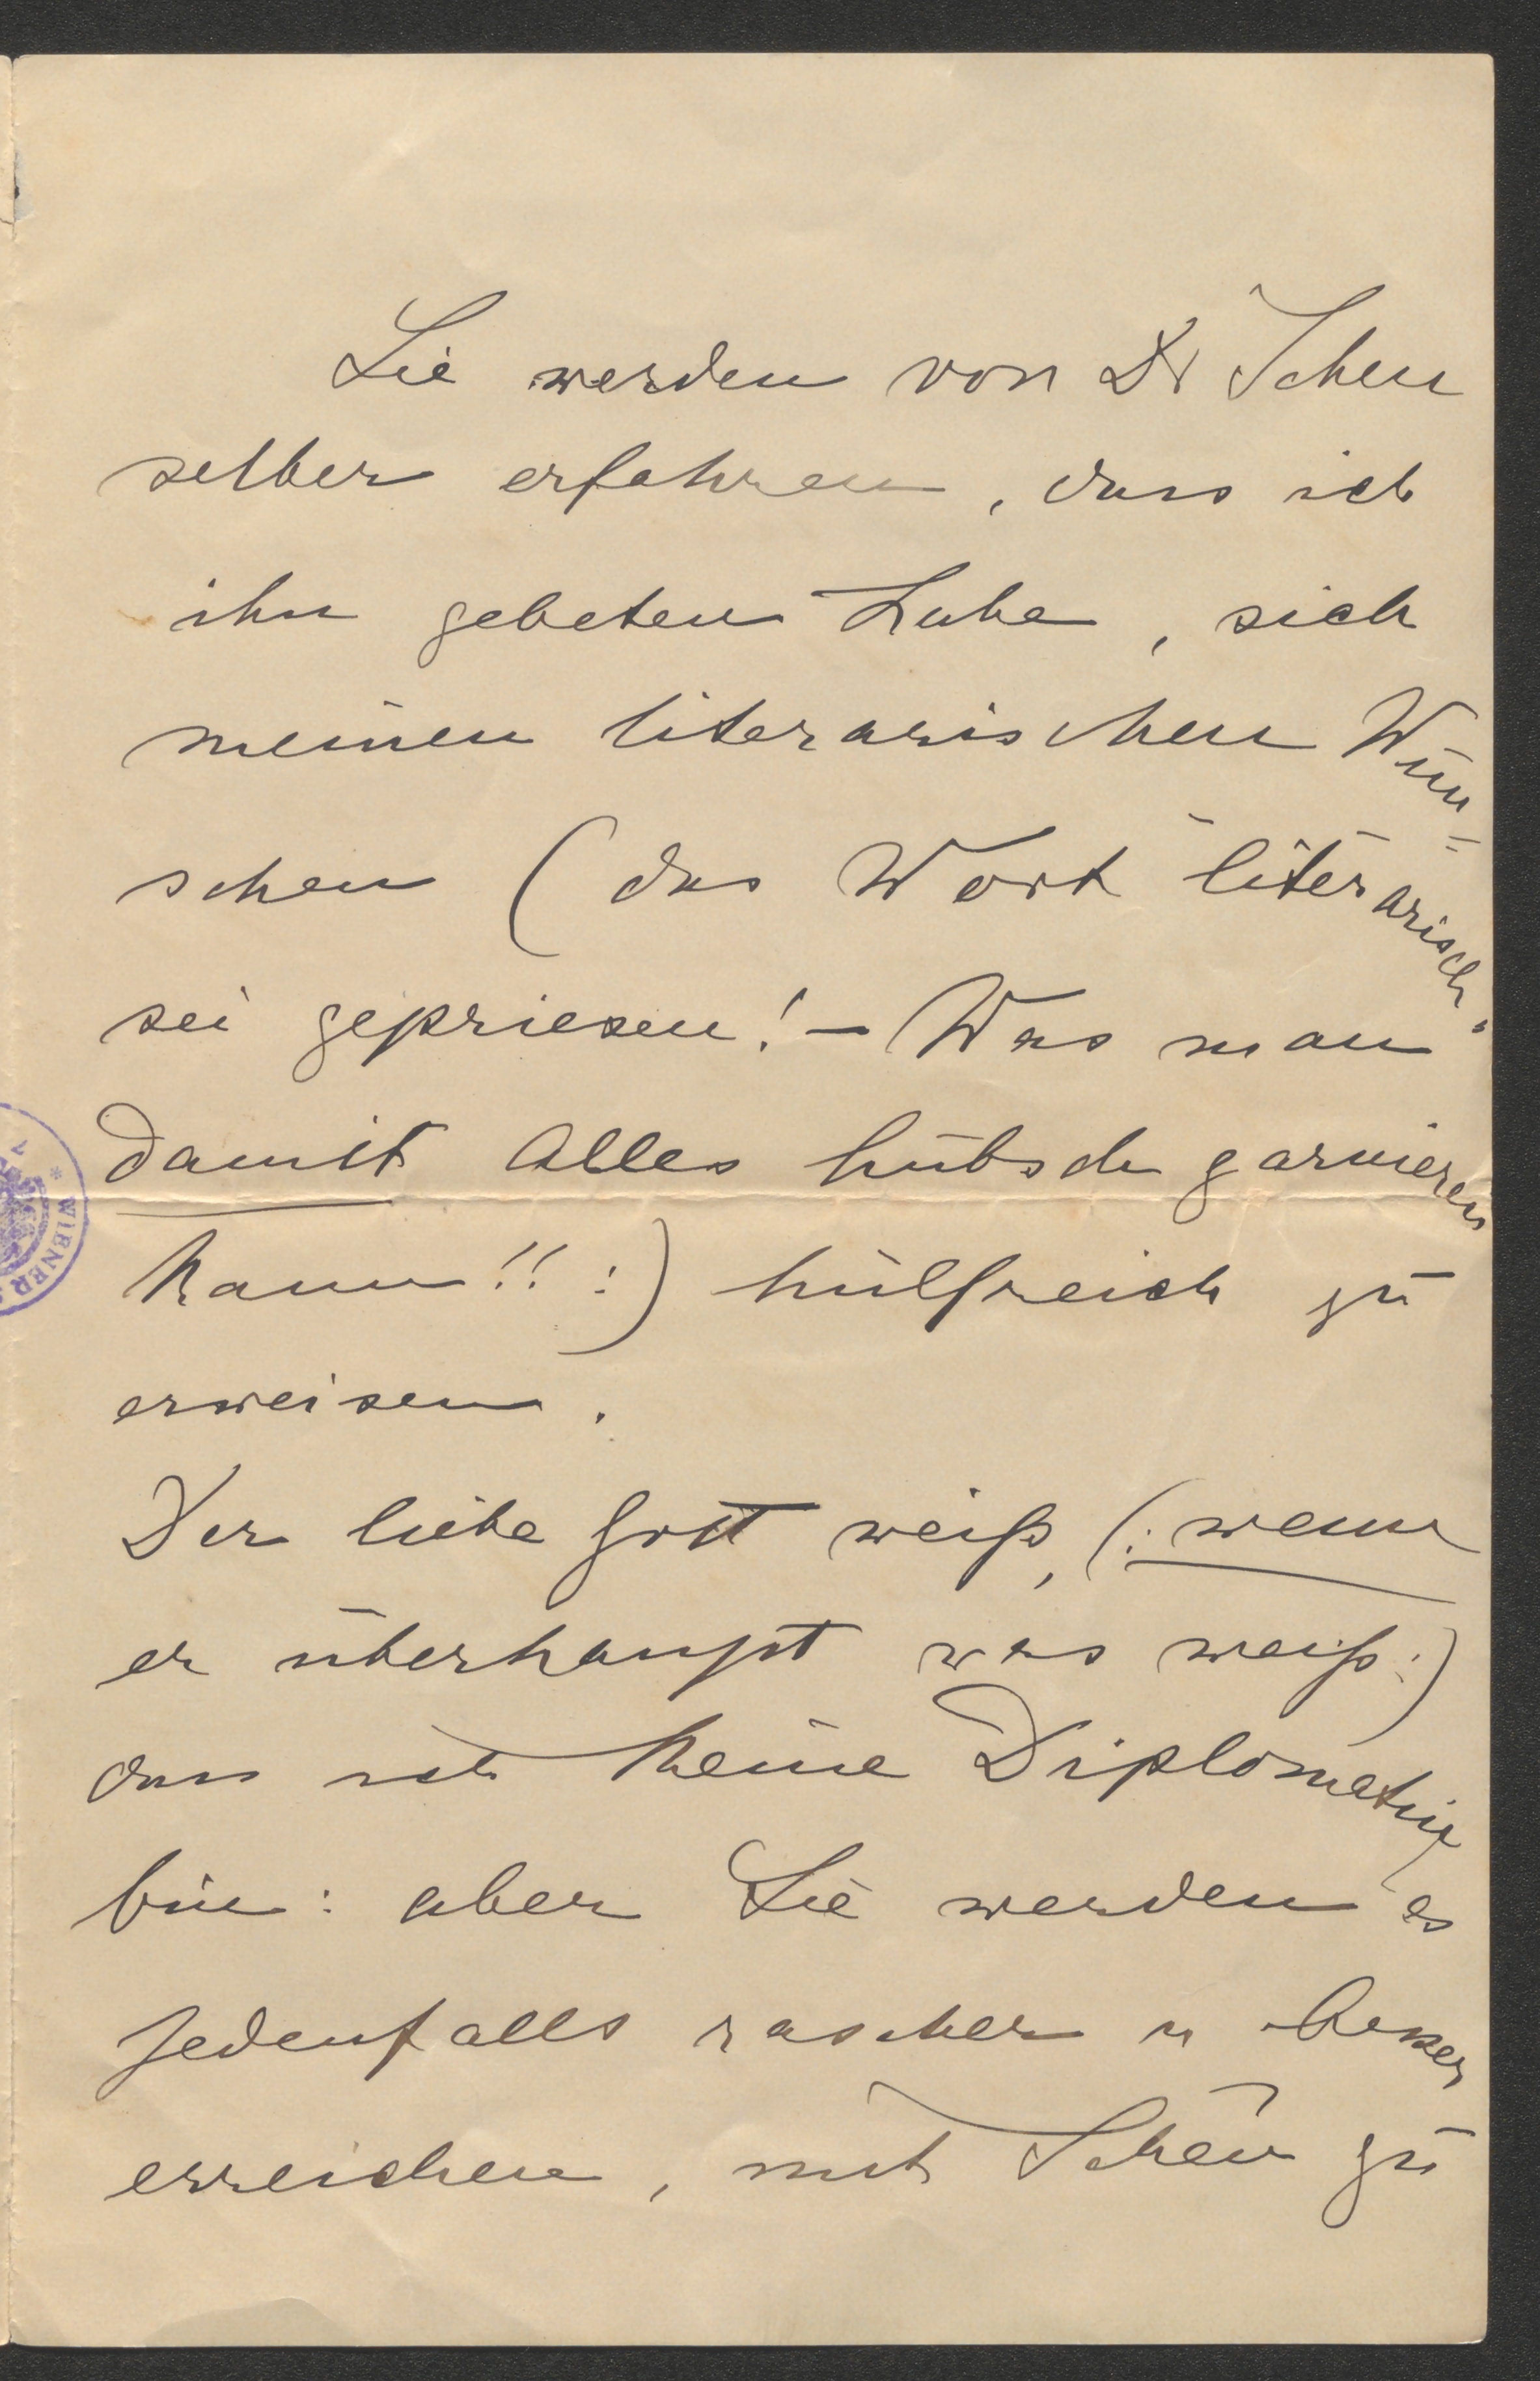 Sie werden von Dr Scheu
selber erfahren, dass ich
ihn gebeten habe, sich
meinen literarischen Wün=
schen (das Wort "literarisch"
sei gepriesen! – Was man
damit Alles hübsch garnieren
kann!! :) hülfreich zu
erweisen.
Der liebe Gott weiß, (: wenn
er überhaupt was weiß :)
dass ich keine Diplomatin
bin: aber Sie werden es
jedenfalls rascher u besser
erreichen, mit Scheu zu
WIENER